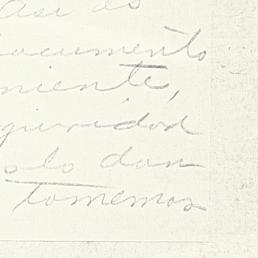 Así es
documento
niente,
guridad
slo dan
tomemos